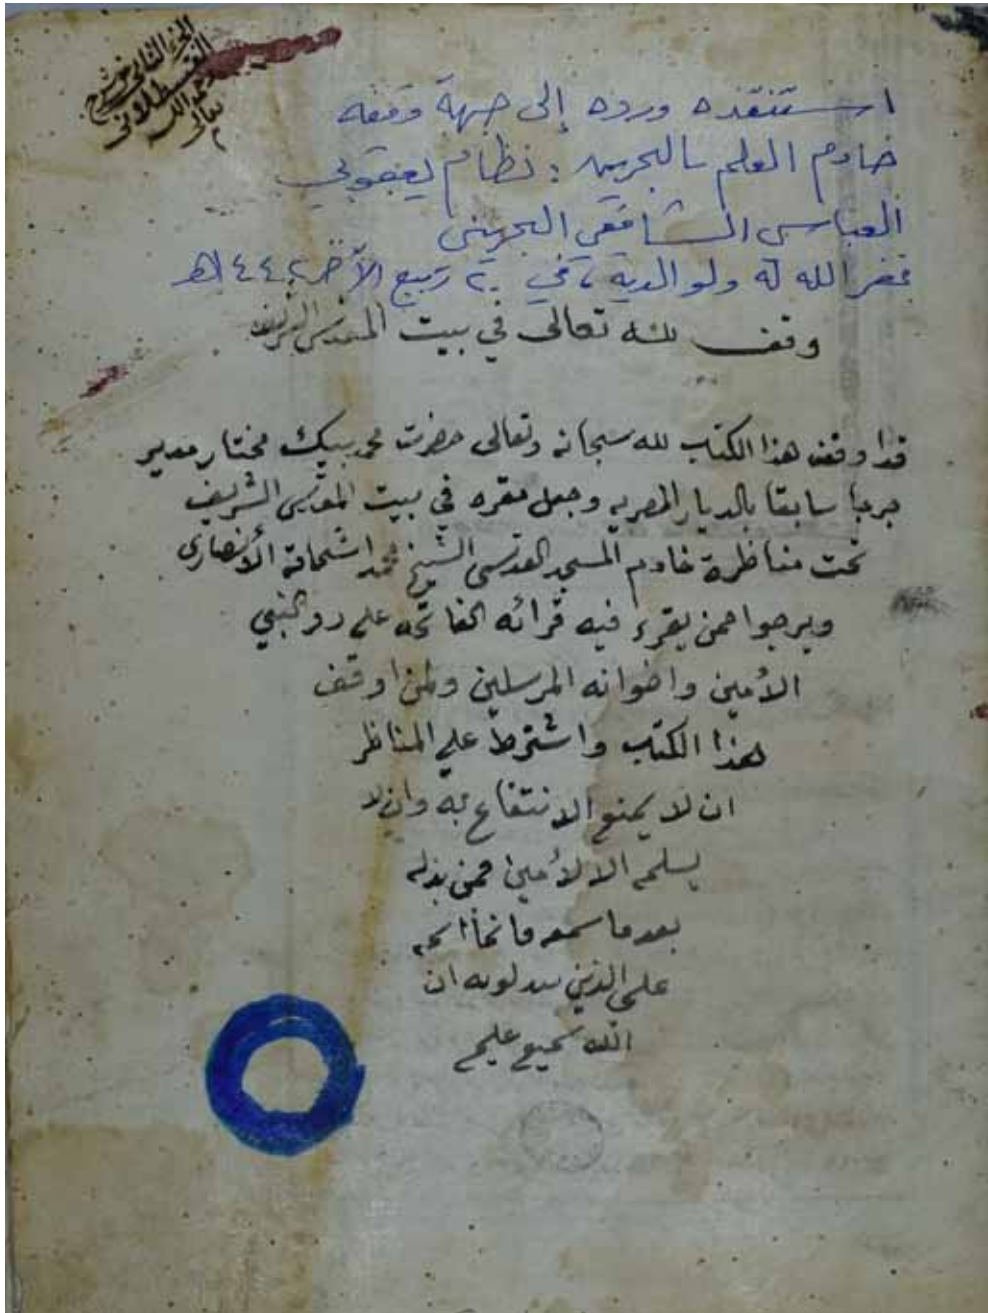 الجزء الثاني من شرح
القسطلاني
رحمه الله
تعالى
استنقذه ورده إلى جهة وقفه
خادم العلم بالبحرين: نظام يعقوبي
العباسي الشافعي البحريني
غفر الله له ولوالديه، في ٢٠ ربيع الآخر ١٤٤٢هـ
وقف لله تعالى في بيت المقدس الشريف
قد اوقف هذا الكتب لله سبحانه وتعالى حضرت محمد بيك مختار مدير
جرجا سابقا بالديار المصريه وجعل مقره في بيت المقدس الشريف
تحت مناظرة خادم المسجد القدسي الشيخ محمد اشحاتة الأنصارى
ويرجوا ممن يقرء فيه قرائه الفاتحه على روح النبي
الأمين واخوانه المرسلين ولمن اوقف
هذا الكتب واشترط على المناظر
ان لا يمنع الانتفاع به وان لا
يسلمه الا لأمين فمن بدله
بعد ما سمعه فانما اثمه
على الذين يبدلونه ان
الله سميع عليم